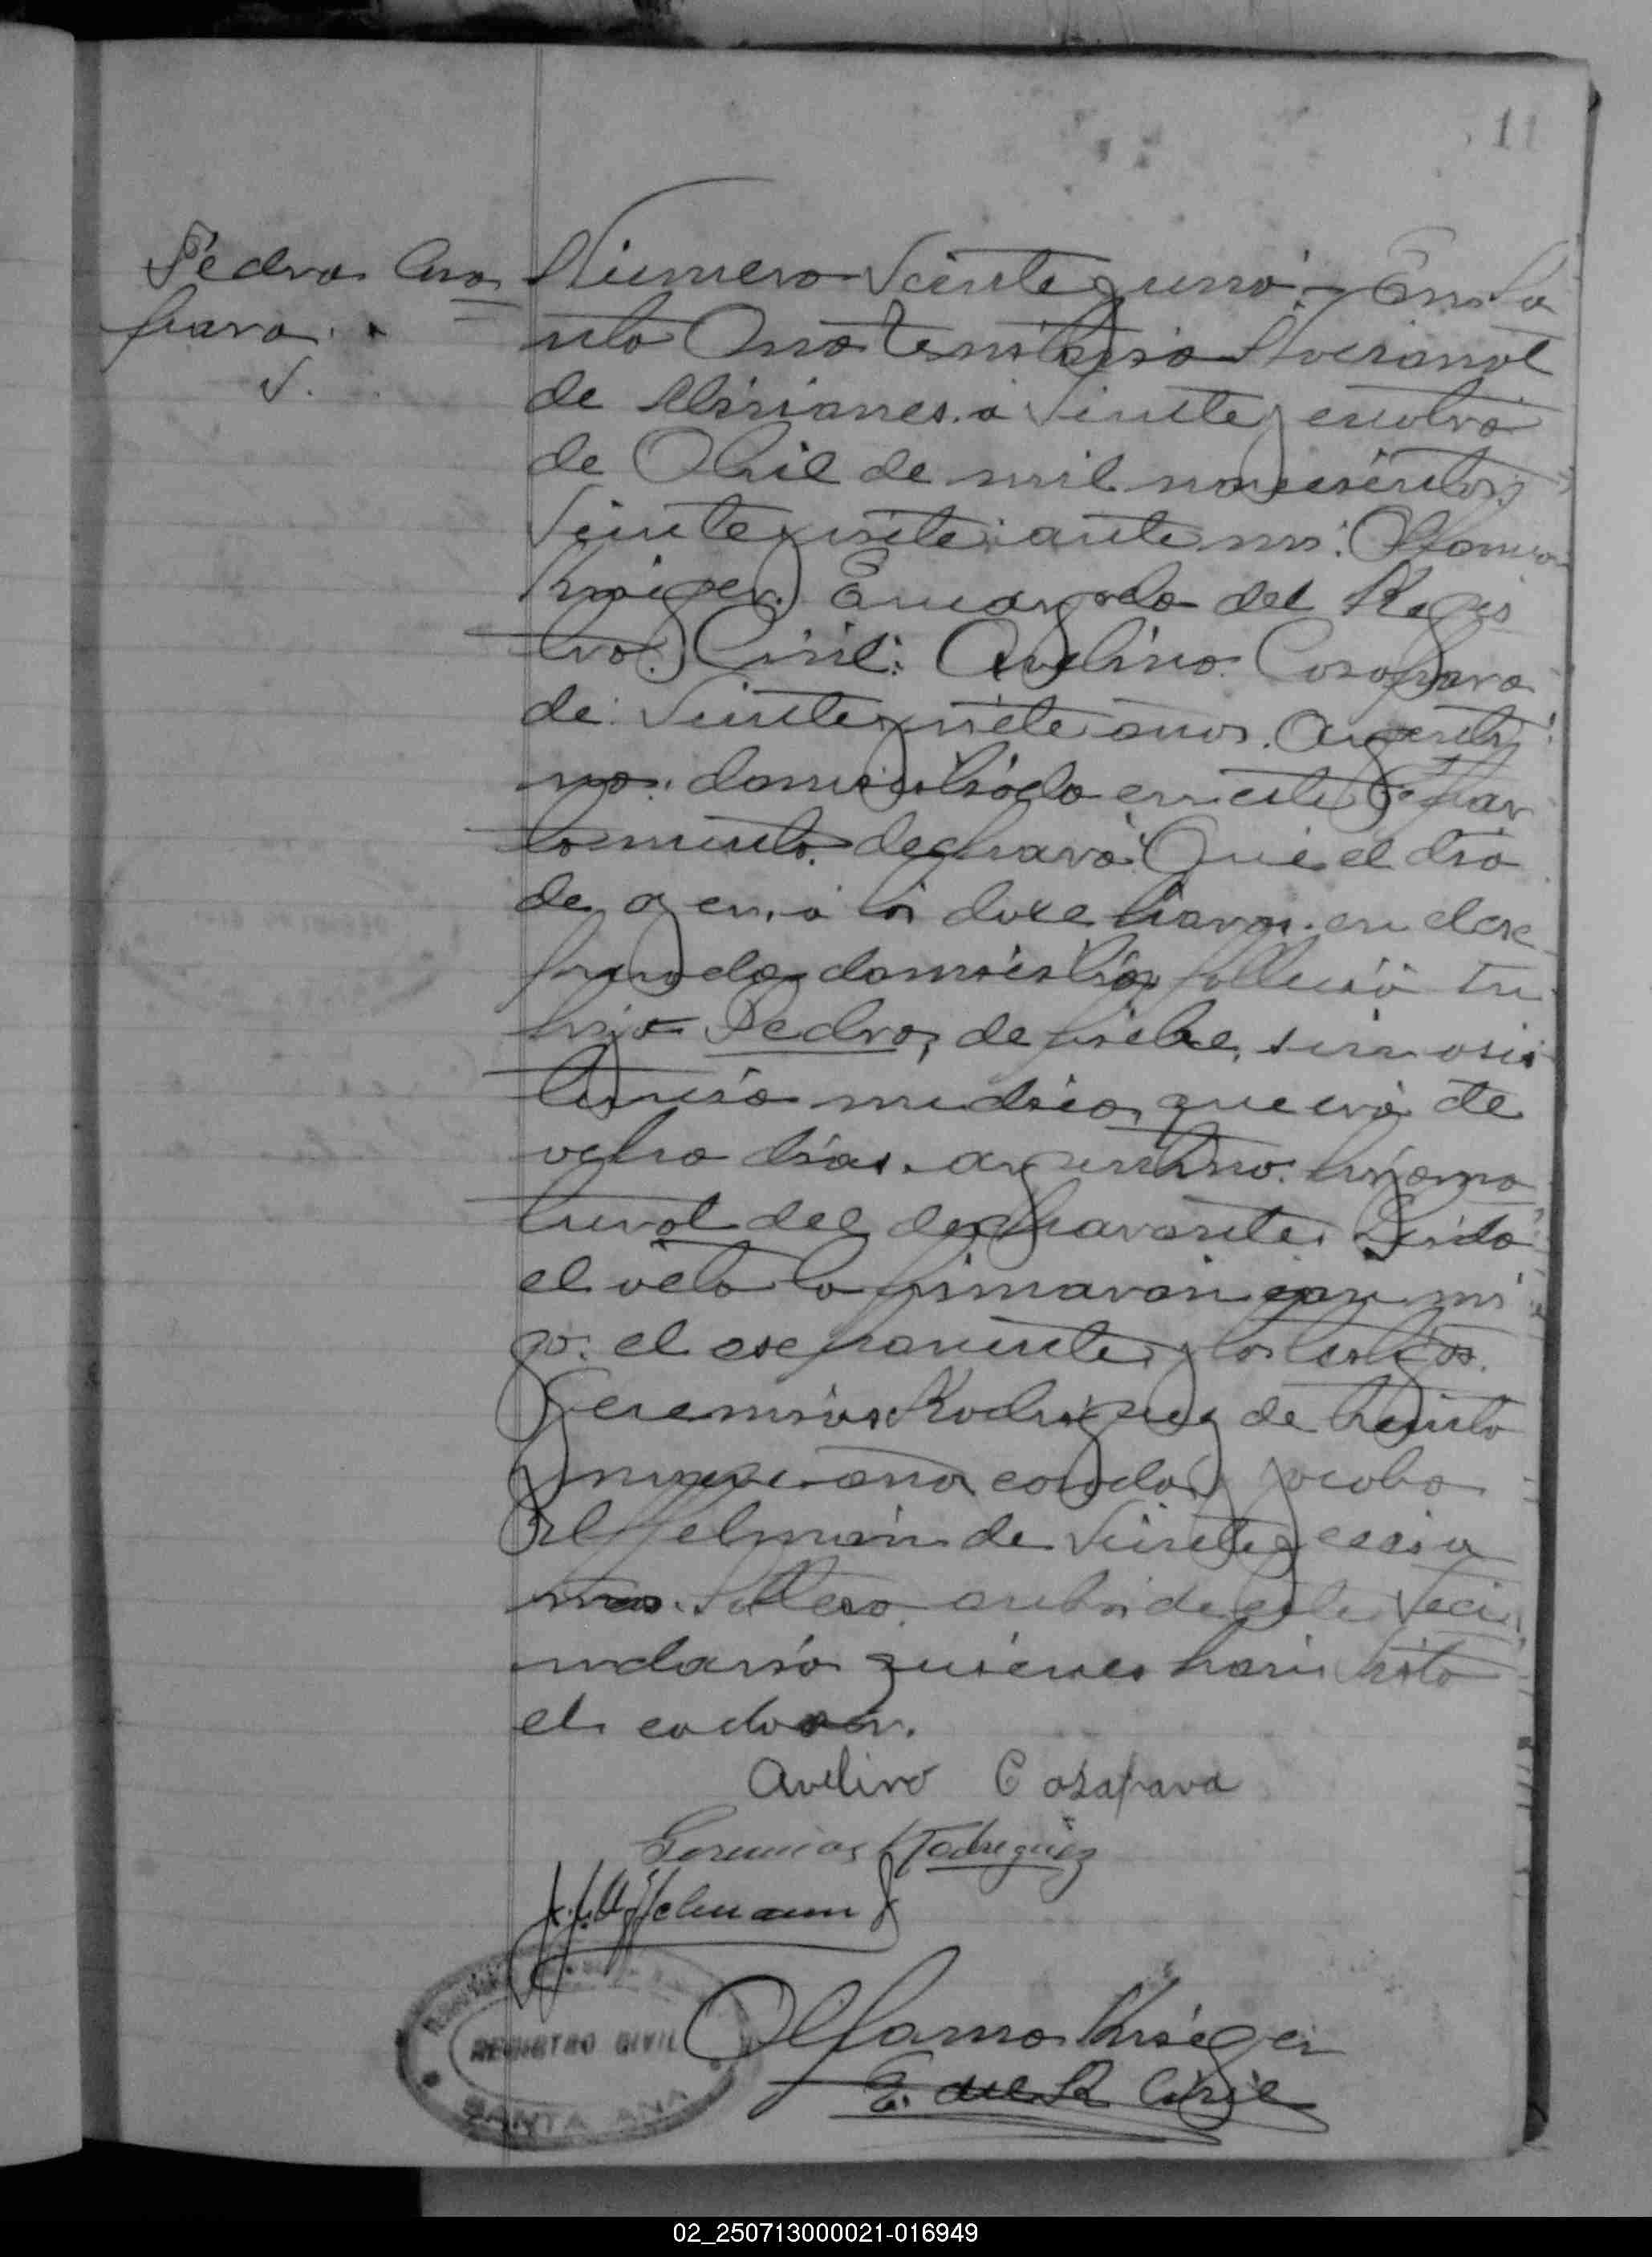 11
Pedro Casa
pava
Número Veinte y uno. En Sa
nta Ana territorio Nacional
de Misiones a Veinte y cuatro
de Abril de mil novecientos
Veinte y siete: ante mi:
Krieger. Encargado del Regis
tro. Civil: Avelino Casapava
de Veinte y siete años. Argenti
no: domiciliado en este Depar
tamento. declaró: Que el dia
de ayer, a las doce horas. en el ex
presado domicilio falleció su
hijo Pedro, de fiebre, sin asis
tencia medica, que era de
ocho dias. argentino. hijo na
tural del declarante. Leida
el acta la firmaron con mi
go: el exponente y los testigos.
Geremias Rodriguez de treinta
y nueve años casado y Jacobo
de Veinte y seis a
ños. Soltero. ambos de este Veci
ndario quienes han visto
el cadaver.
Avelino Casapava
Geremias Rodriguez
REGISTRO CIVIL
SANTA ANA
Krieger
E. del R. Civil
02_250713000021-016949